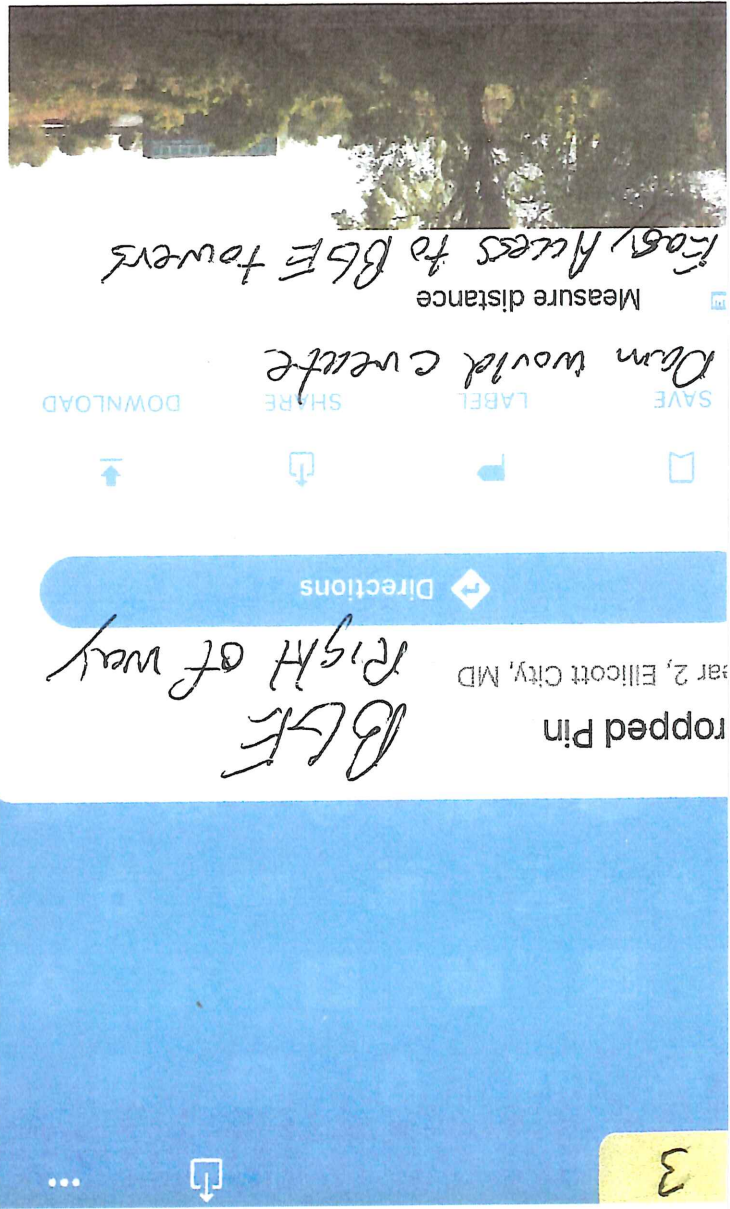 3
...
ropped Pin
BGE
ear 2, Ellicott City, MD
Right of way
Directions
SAVE LABEL SHARE DOWNLOAD
Dam would create
Measure distance
Easy Access to BGE towers